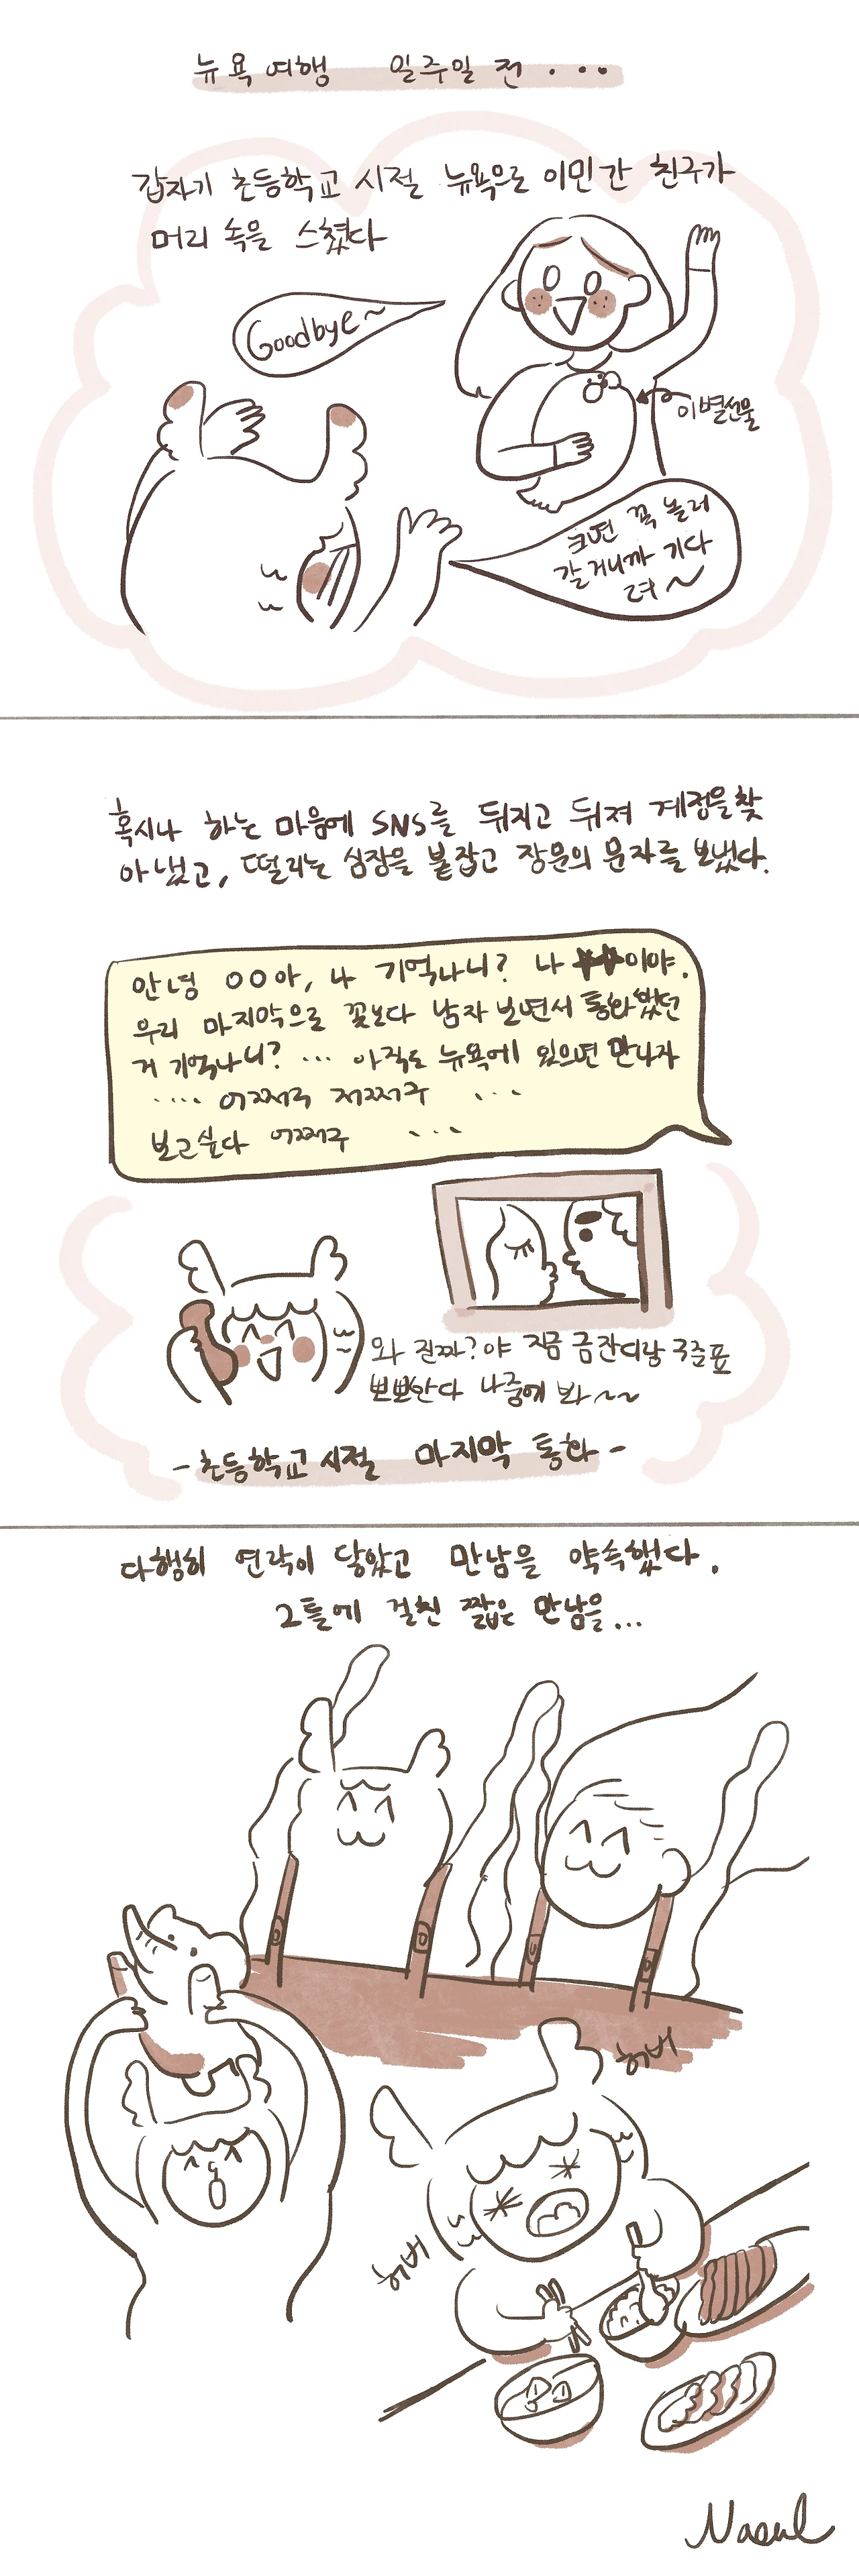 뉴욕 여행 일주일 전...
갑자기 초등학교 시절 뉴욕으로 이민 간 친구가
머리 속을 스쳤다
Goodbye~
이별선물
크면 꼭 놀러
갈 거니까 기다
려~
혹시나 하는 마음에 SNS를 뒤지고 뒤져 계정을 찾
아냈고, 떨리는 심장을 붙잡고 장문의 문자를 보냈다.
안녕 OO아, 나 기억나니? 나 이야.
우리 마지막으로 꽃보다 남자 보면서 통화했던
거 기억나니? ... 아직도 뉴욕에 있으면 만나자
.... 어쩌구 저쩌구 ...
보고싶다 어쩌구 ...
와 진짜? 야 지금 금잔디랑 구준표
뽀뽀한다 나중에 봐~~
-초등학교 시절 마지막 통화-
다행히 연락이 닿았고 만남을 약속했다.
2틀에 걸친 짧은 만남을...
허버
허버
Nasul